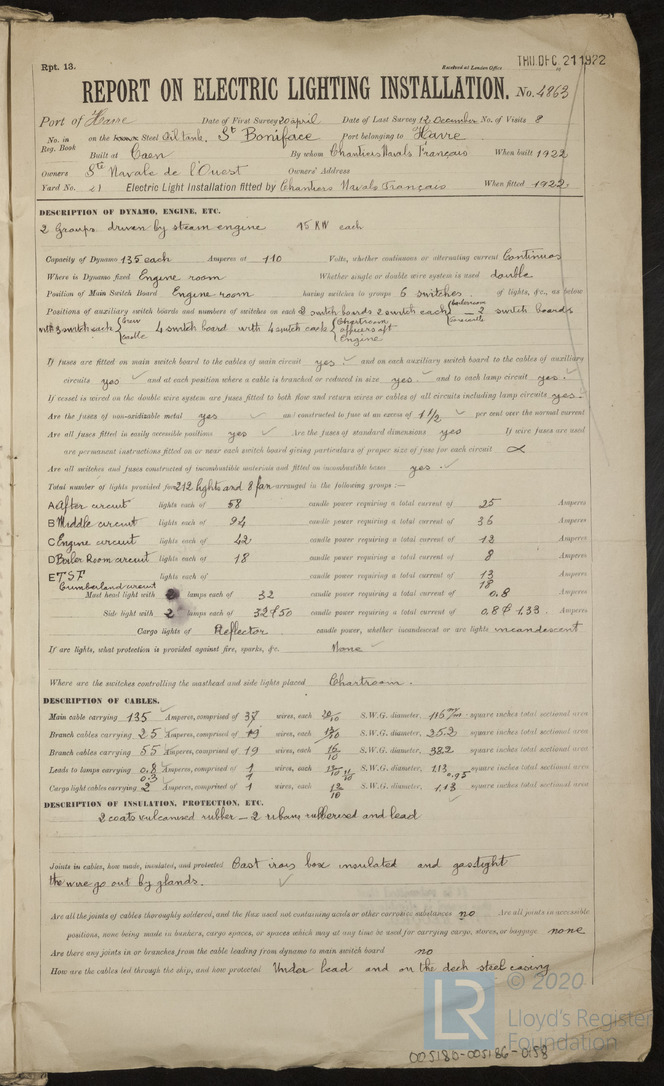 Rpt. 13.
Received at London Office THU. DEC. 21 1922
REPORT ON ELECTRIC LIGHTING INSTALLATION. No. 4863
Port of Havre Date of First Survey 20 april Date of Last Survey 12 December No. of Visits 8
No. in Reg. Book on the Steel Oil tank. St Boniface Port belonging to Havre
Built at Caen By whom Chantiers Navals Français When built 1922
Owners Sté Navale de l'Ouest Owners' Address
Yard No. 21 Electric Light Installation fitted by Chantiers Navals Français When fitted 1922
DESCRIPTION OF DYNAMO, ENGINE, ETC.
2 Groups driven by steam engine 15 KW each
Capacity of Dynamo 135 each Amperes at 110 Volts, whether continuous or alternating current Continuos
Where is Dynamo fixed Engine room Whether single or double wire system is used double
Position of Main Switch Board Engine room having switches to groups 6 switches of lights, &c., as below
Positions of auxiliary switch boards and numbers of switches on each 2 switch boards, 2 switch each 2 switch boards
with 3 switch each castle 4 switch board with 4 switch each Chartroom officers aft Engine
If fuses are fitted on main switch board to the cables of main circuit yes and on each auxiliary switch board to the cables of auxiliary
circuits yes and at each position where a cable is branched or reduced in size yes and to each lamp circuit yes.
If vessel is wired on the double wire system are fuses fitted to both flow and return wires or cables of all circuits including lamp circuits yes
Are the fuses of non-oxidizable metal yes and constructed to fuse at an excess of 1 1/2 per cent over the normal current
Are all fuses fitted in easily accessible positions yes Are the fuses of standard dimensions yes If wire fuses are used
are permanent instructions fitted on or near each switch board giving particulars of proper size of fuse for each circuit
Are all switches and fuses constructed of incombustible materials and fitted on incombustible bases yes.
Total number of lights provided for 212 lights and 8 fan arranged in the following groups :—
A After circuit lights each of 58 candle power requiring a total current of 25 Amperes
B Middle circuit lights each of 94 candle power requiring a total current of 36 Amperes
C Engine circuit lights each of 42 candle power requiring a total current of 12 Amperes
D Boiler Room circuit lights each of 18 candle power requiring a total current of 8 Amperes
E TSF lights each of candle power requiring a total current of 13 Amperes
Cumberland circuit 18
Mast head light with lamps each of 32 candle power requiring a total current of 0.8 Amperes
Side light with 2 lamps each of 32 & 50 candle power requiring a total current of 0,8 & 1.33. Amperes
Cargo lights of Reflector candle power, whether incandescent or arc lights incandescent
If arc lights, what protection is provided against fire, sparks, &c. None
Where are the switches controlling the masthead and side lights placed Chartroom.
DESCRIPTION OF CABLES.
Main cable carrying 135 Amperes, comprised of 37 wires, each 20/10 S.W.G. diameter, 116 m/m square inches total sectional area
Branch cables carrying 25 Amperes, comprised of 19 wires, each S.W.G. diameter, 25.2 square inches total sectional area
Branch cables carrying 55 Amperes, comprised of 19 wires, each 16/10 S.W.G. diameter, 38.2 square inches total sectional area
Leads to lamps carrying 0.8 0.3 Amperes, comprised of 1 1 wires, each 12/10 S.W.G. diameter, 1.13 0.95 square inches total sectional area
Cargo light cables carrying 2 Amperes, comprised of 1 wires, each 12/10 S.W.G. diameter, 1,13 square inches total sectional area
DESCRIPTION OF INSULATION, PROTECTION, ETC.
2 coats vulcanised rubber — 2 ribans rubberised and lead
Joints in cables, how made, insulated, and protected Cast irois box insulated and gastight
the wire go out by glands.
Are all the joints of cables thoroughly soldered, and the flux used not containing acids or other corrosive substances no Are all joints in accessible
positions, none being made in bunkers, cargo spaces, or spaces which may at any time be used for carrying cargo, stores, or baggage none
Are there any joints in or branches from the cable leading from dynamo to main switch board no
How are the cables led through the ship, and how protected Under lead and on the deck steel casing
© 2020
LR
Lloyd's Register
Foundation
005180-005186-0158